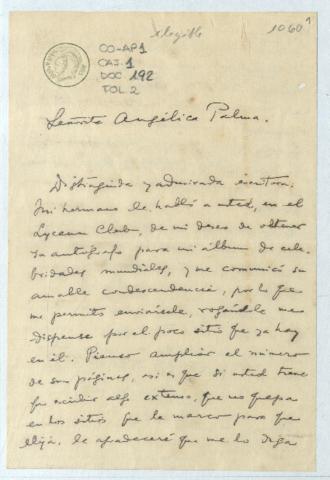 Ilegible
1060
CO-AP1
CAJ. 1
DOC 192
FOL 2
Señorita Angélica Palma.
Distinguida y admirada escritora:
Mi hermano le habló a usted, en el
Lyceum Club, de mi deseo de obtener
su autógrafo para mi álbum de cele-
bridades mundiales, y me comunicó su
amable condescendencia, por lo que
me permito enviársele, rogándole me
dispense por el poco sitio que ya hay
en él. Pienso ampliar el número
de sus páginas, así es que si usted tiene
que escribir algo extenso, que no quepa
en los sitios que le marco para que
elija, le agradeceré que me lo diga